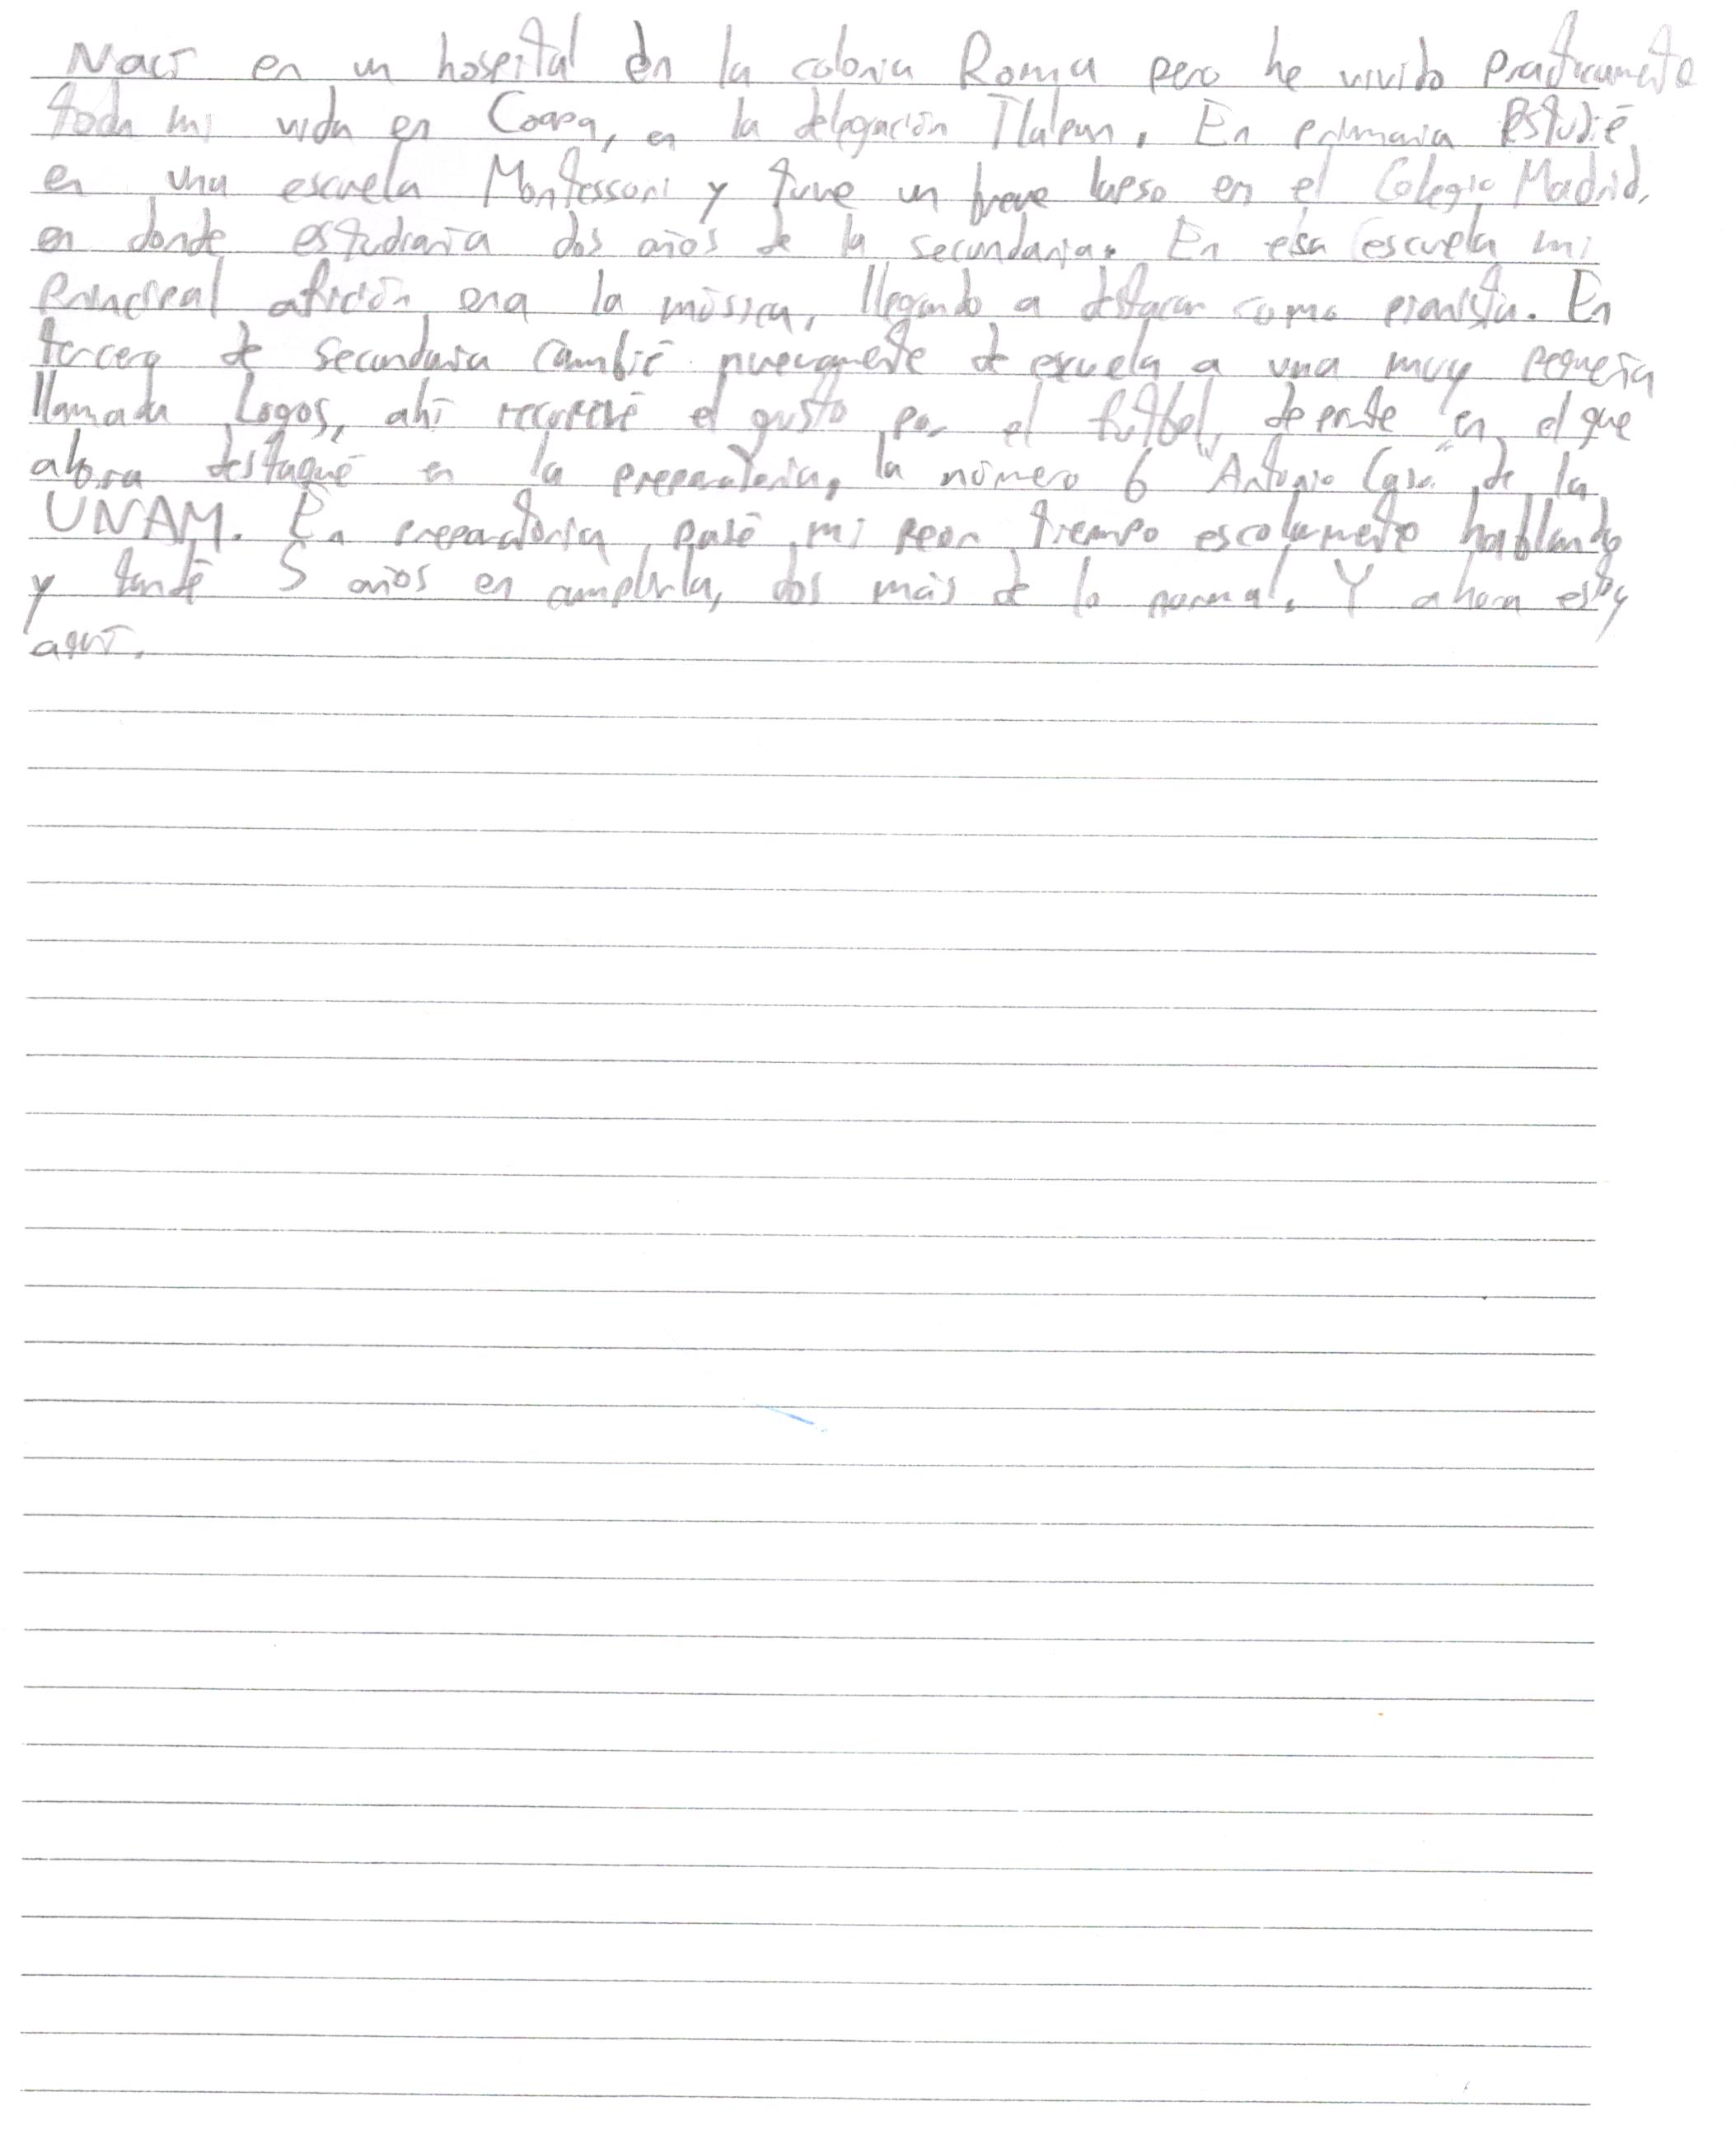 Nací en un hospital en la colonia Roma pero he vivido practicamente
toda mi vida en Coapa, en la delegación Tlalpan. En primaria estudié
en una escuela Montessori y tuve un breve lapso en el Colegio Madrid,
en donde estudiaría dos años de la secundaria. En esa escuela mi
principal afición era la música, llegando a destacar como pianista. En
tercero de secundaria cambié nuevamente de escuela a una muy pequeña
llamada Logos, ahí recuperé el gusto por el futbol, deporte en el que
ahora destaqué en la preparatoria, la número 6 "Antonio Caso" de la
UNAM. En preparatoria pasé mi peor tiempo escolarmente hablando
y tardé 5 años en cumplirla, dos más de lo normal. Y ahora estoy
aquí.